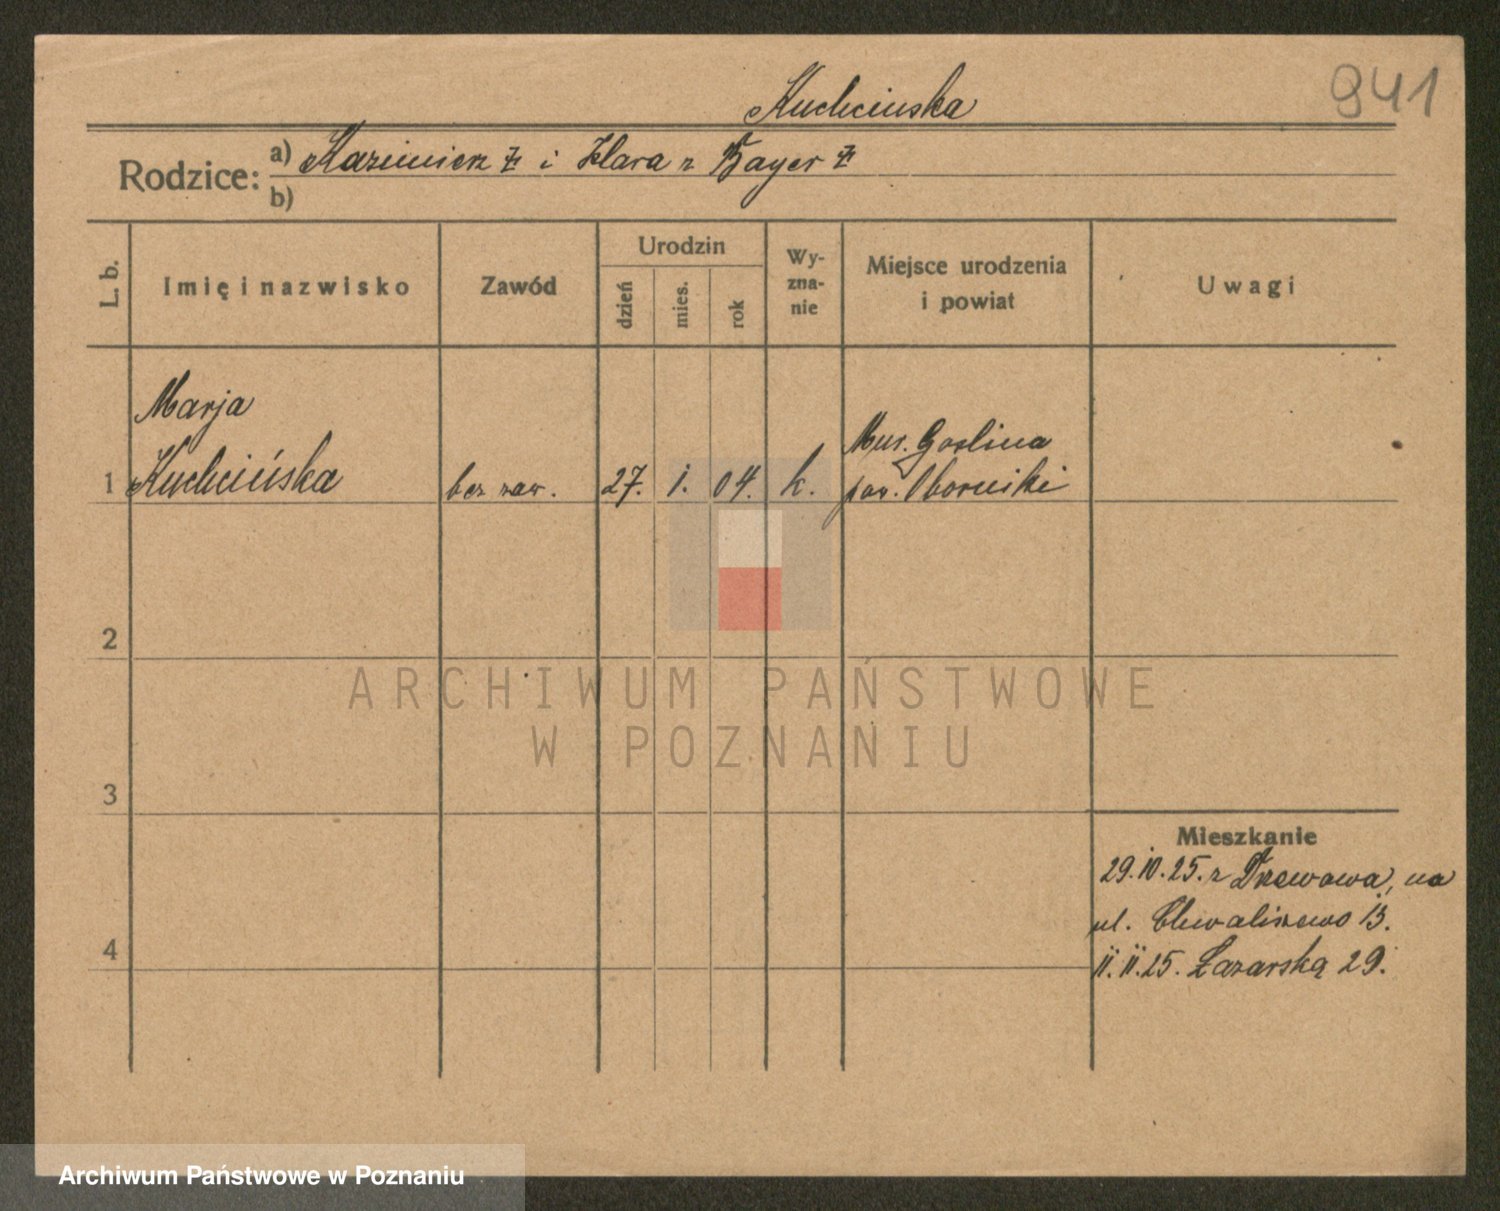 Kuchcinska
941
Rodzice: a) Kazimierz i Klara z Bayer
b)
L. b.
Imię i nazwisko
Zawód
Urodzin
dzień
mies.
rok
Wy-
zna-
nie
Miejsce urodzenia
i powiat
Uwagi
Marja
1 Kuchcińska bez zaw. 27. 1. 04. k.
Mur. Goslina
pow. Oborniki
2
3
4
Mieszkanie
29.10.25. z na
ul. Chwaliszewo 13.
11.11.25. Łazarską 29.
ARCHIWUM PAŃSTWOWE
W POZNANIU
Archiwum Państwowe w Poznaniu